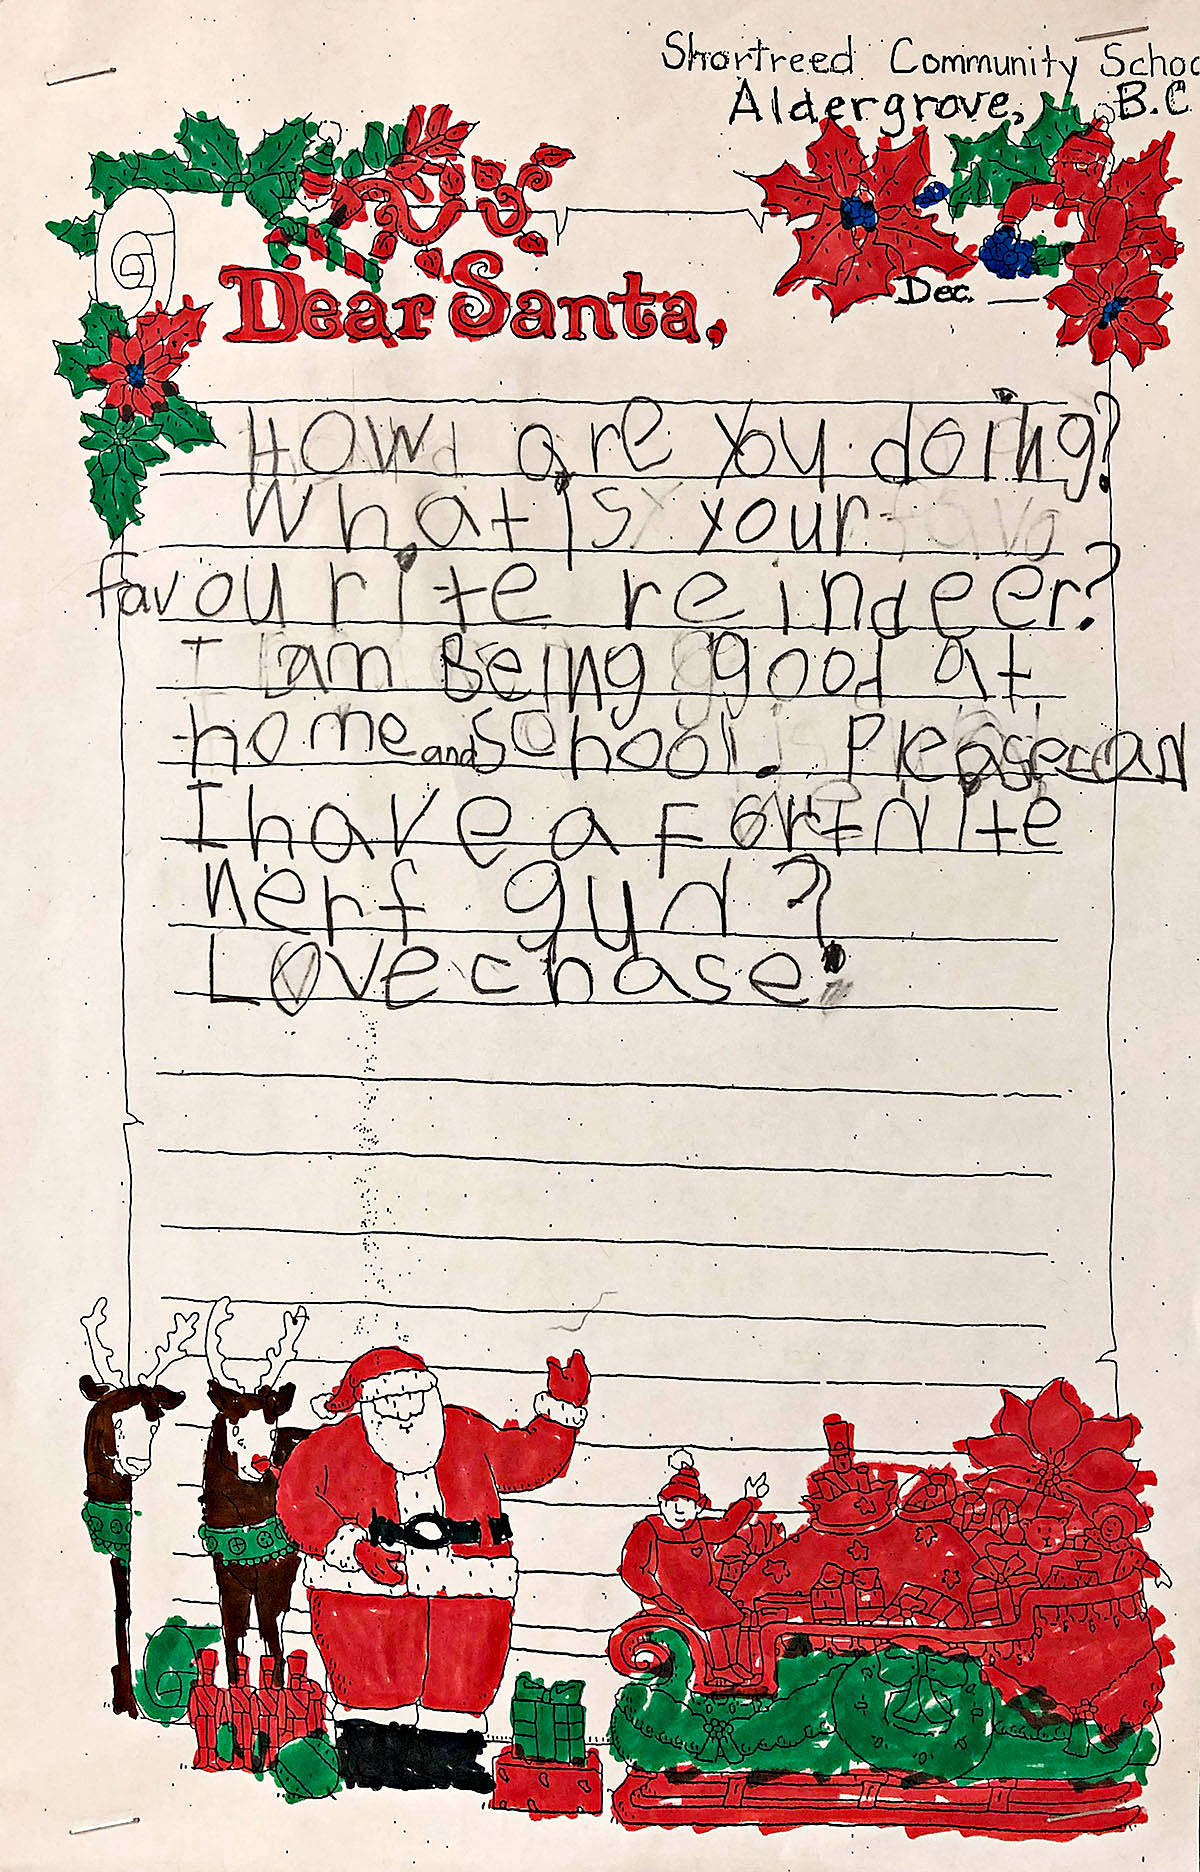 Shortreed Community Schoo
Aldergrove, B.C
Dear Santa,
Dec.
How are you doing?
What is your
favourite reindeer?
I am Being good at
home and school. Please can
I have a Fortnite
nerf gun?
Love chase!